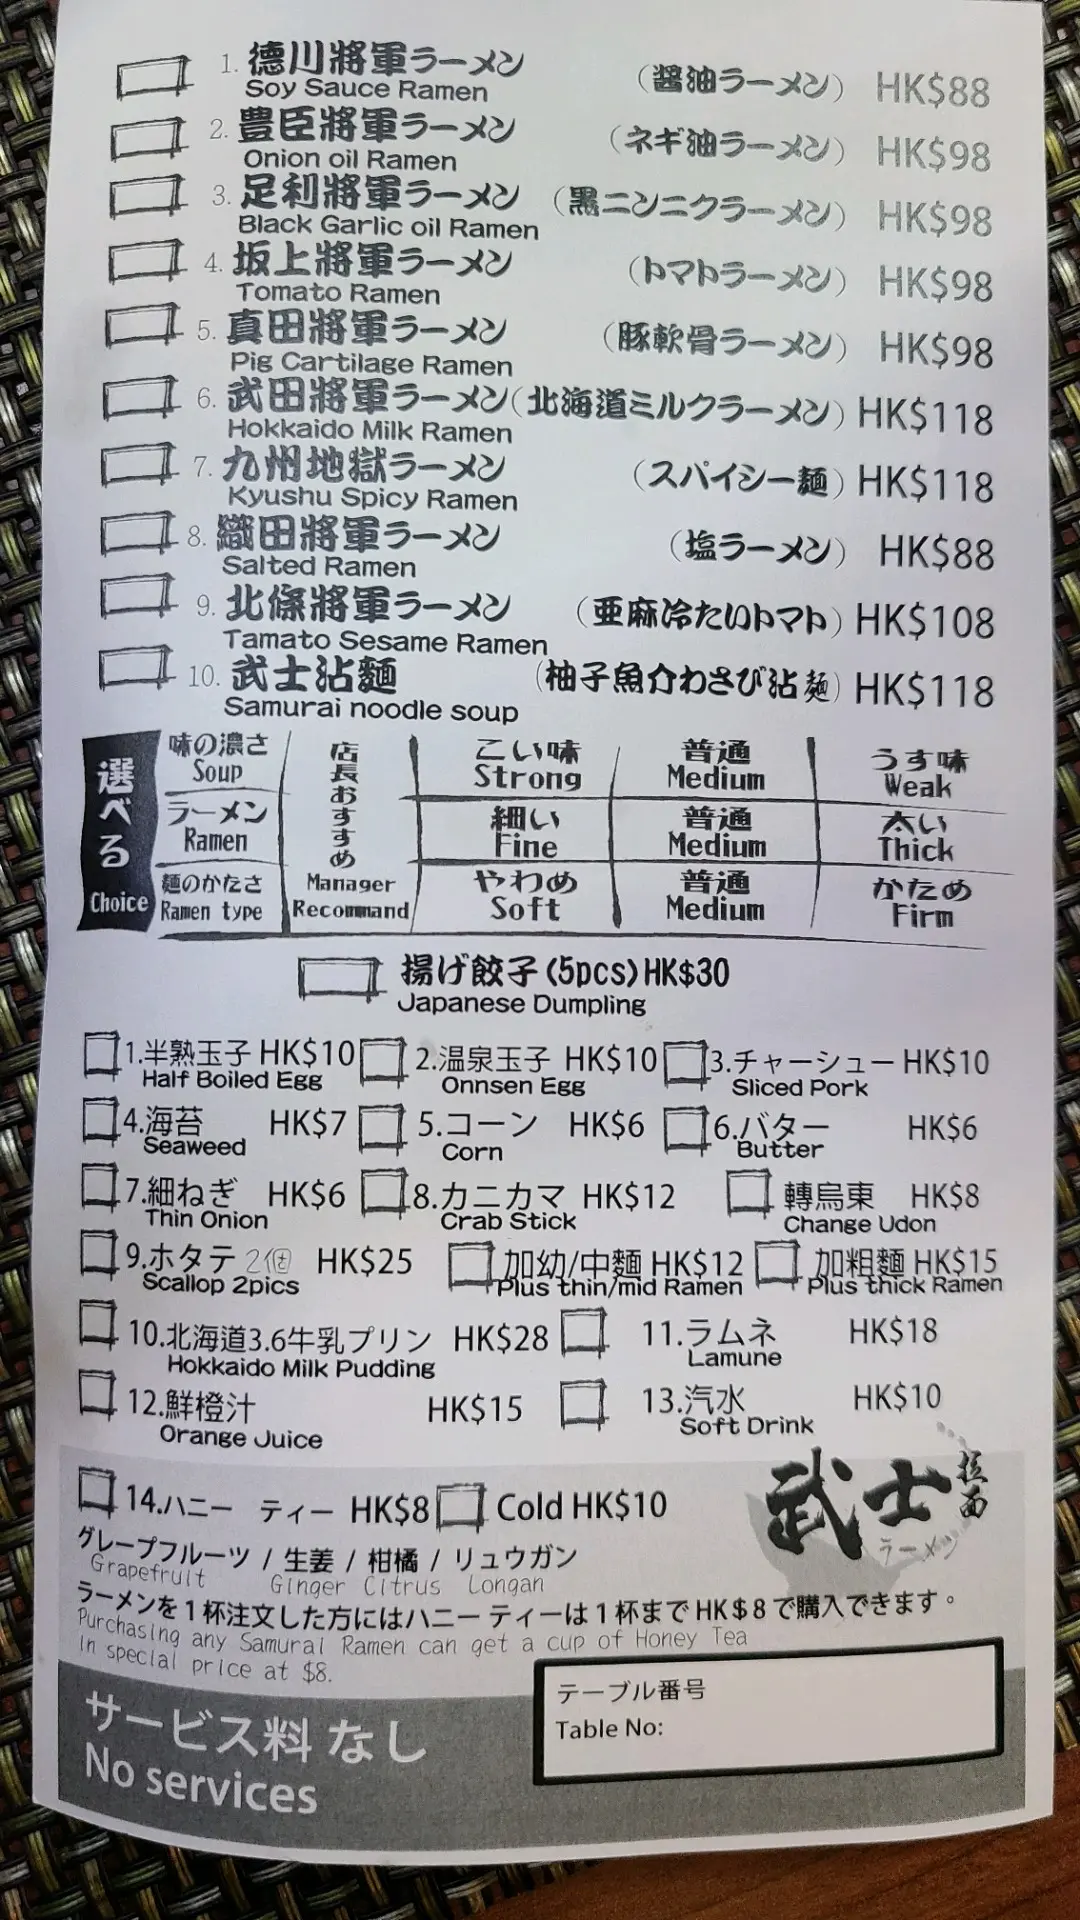 1. 德川將軍ラーメン (醤油ラーメン) HK$88
Soy Sauce Ramen
2. 豊臣將軍ラーメン (ネギ油ラーメン) HK$98
Onion oil Ramen
3. 足利將軍ラーメン (黒ニンニクラーメン) HK$98
Black Garlic oil Ramen
4. 坂上將軍ラーメン (トマトラーメン) HK$98
Tomato Ramen
5. 真田將軍ラーメン (豚軟骨ラーメン) HK$98
Pig Cartilage Ramen
6. 武田將軍ラーメン (北海道ミルクラーメン) HK$118
Hokkaido Milk Ramen
7. 九州地獄ラーメン (スパイシー麺) HK$118
Kyushu Spicy Ramen
8. 織田將軍ラーメン (塩ラーメン) HK$88
Salted Ramen
9. 北條將軍ラーメン (亜麻冷たいトマト) HK$108
Tamato Sesame Ramen
10. 武士沾麵 (柚子魚介わさび沾麺) HK$118
Samurai noodle soup
選べる
Choice
味の濃さ
Soup
ラーメン
Ramen
麺のかたさ
Ramen type
店長おすすめ
Manager
Recommand
こい味 普通 うす味
Strong Medium Weak
細い 普通 太い
Fine Medium Thick
やわめ 普通 かため
Soft Medium Firm
揚げ餃子(5pcs)HK$30
Japanese Dumpling
1.半熟玉子 HK$10 2.温泉玉子 HK$10 3.チャーシュー HK$10
Half Boiled Egg Onnsen Egg Sliced Pork
4.海苔 HK$7 5.コーン HK$6 6.バター HK$6
Seaweed Corn Butter
7.細ねぎ HK$6 8.カニカマ HK$12 轉烏東 HK$8
Thin Onion Crab Stick Change Udon
9.ホタテ 2個 HK$25 加幼/中麵 HK$12 加粗麵 HK$15
Scallop 2pics Plus thin/mid Ramen Plus thick Ramen
10.北海道3.6牛乳プリン HK$28 11.ラムネ HK$18
Hokkaido Milk Pudding Lamune
12.鮮橙汁 HK$15 13.汽水 HK$10
Orange Juice Soft Drink
14.ハニー ティー HK$8 Cold HK$10
武士
拉面
ラーメン
グレープフルーツ / 生姜 / 柑橘 / リュウガン
Grapefruit Ginger Citrus Longan
ラーメンを1杯注文した方にはハニー ティーは1杯まで HK$8で購入できます。
Purchasing any Samurai Ramen can get a cup of Honey Tea
in special price at $8.
サービス料 なし
No services
テーブル番号
Table No: